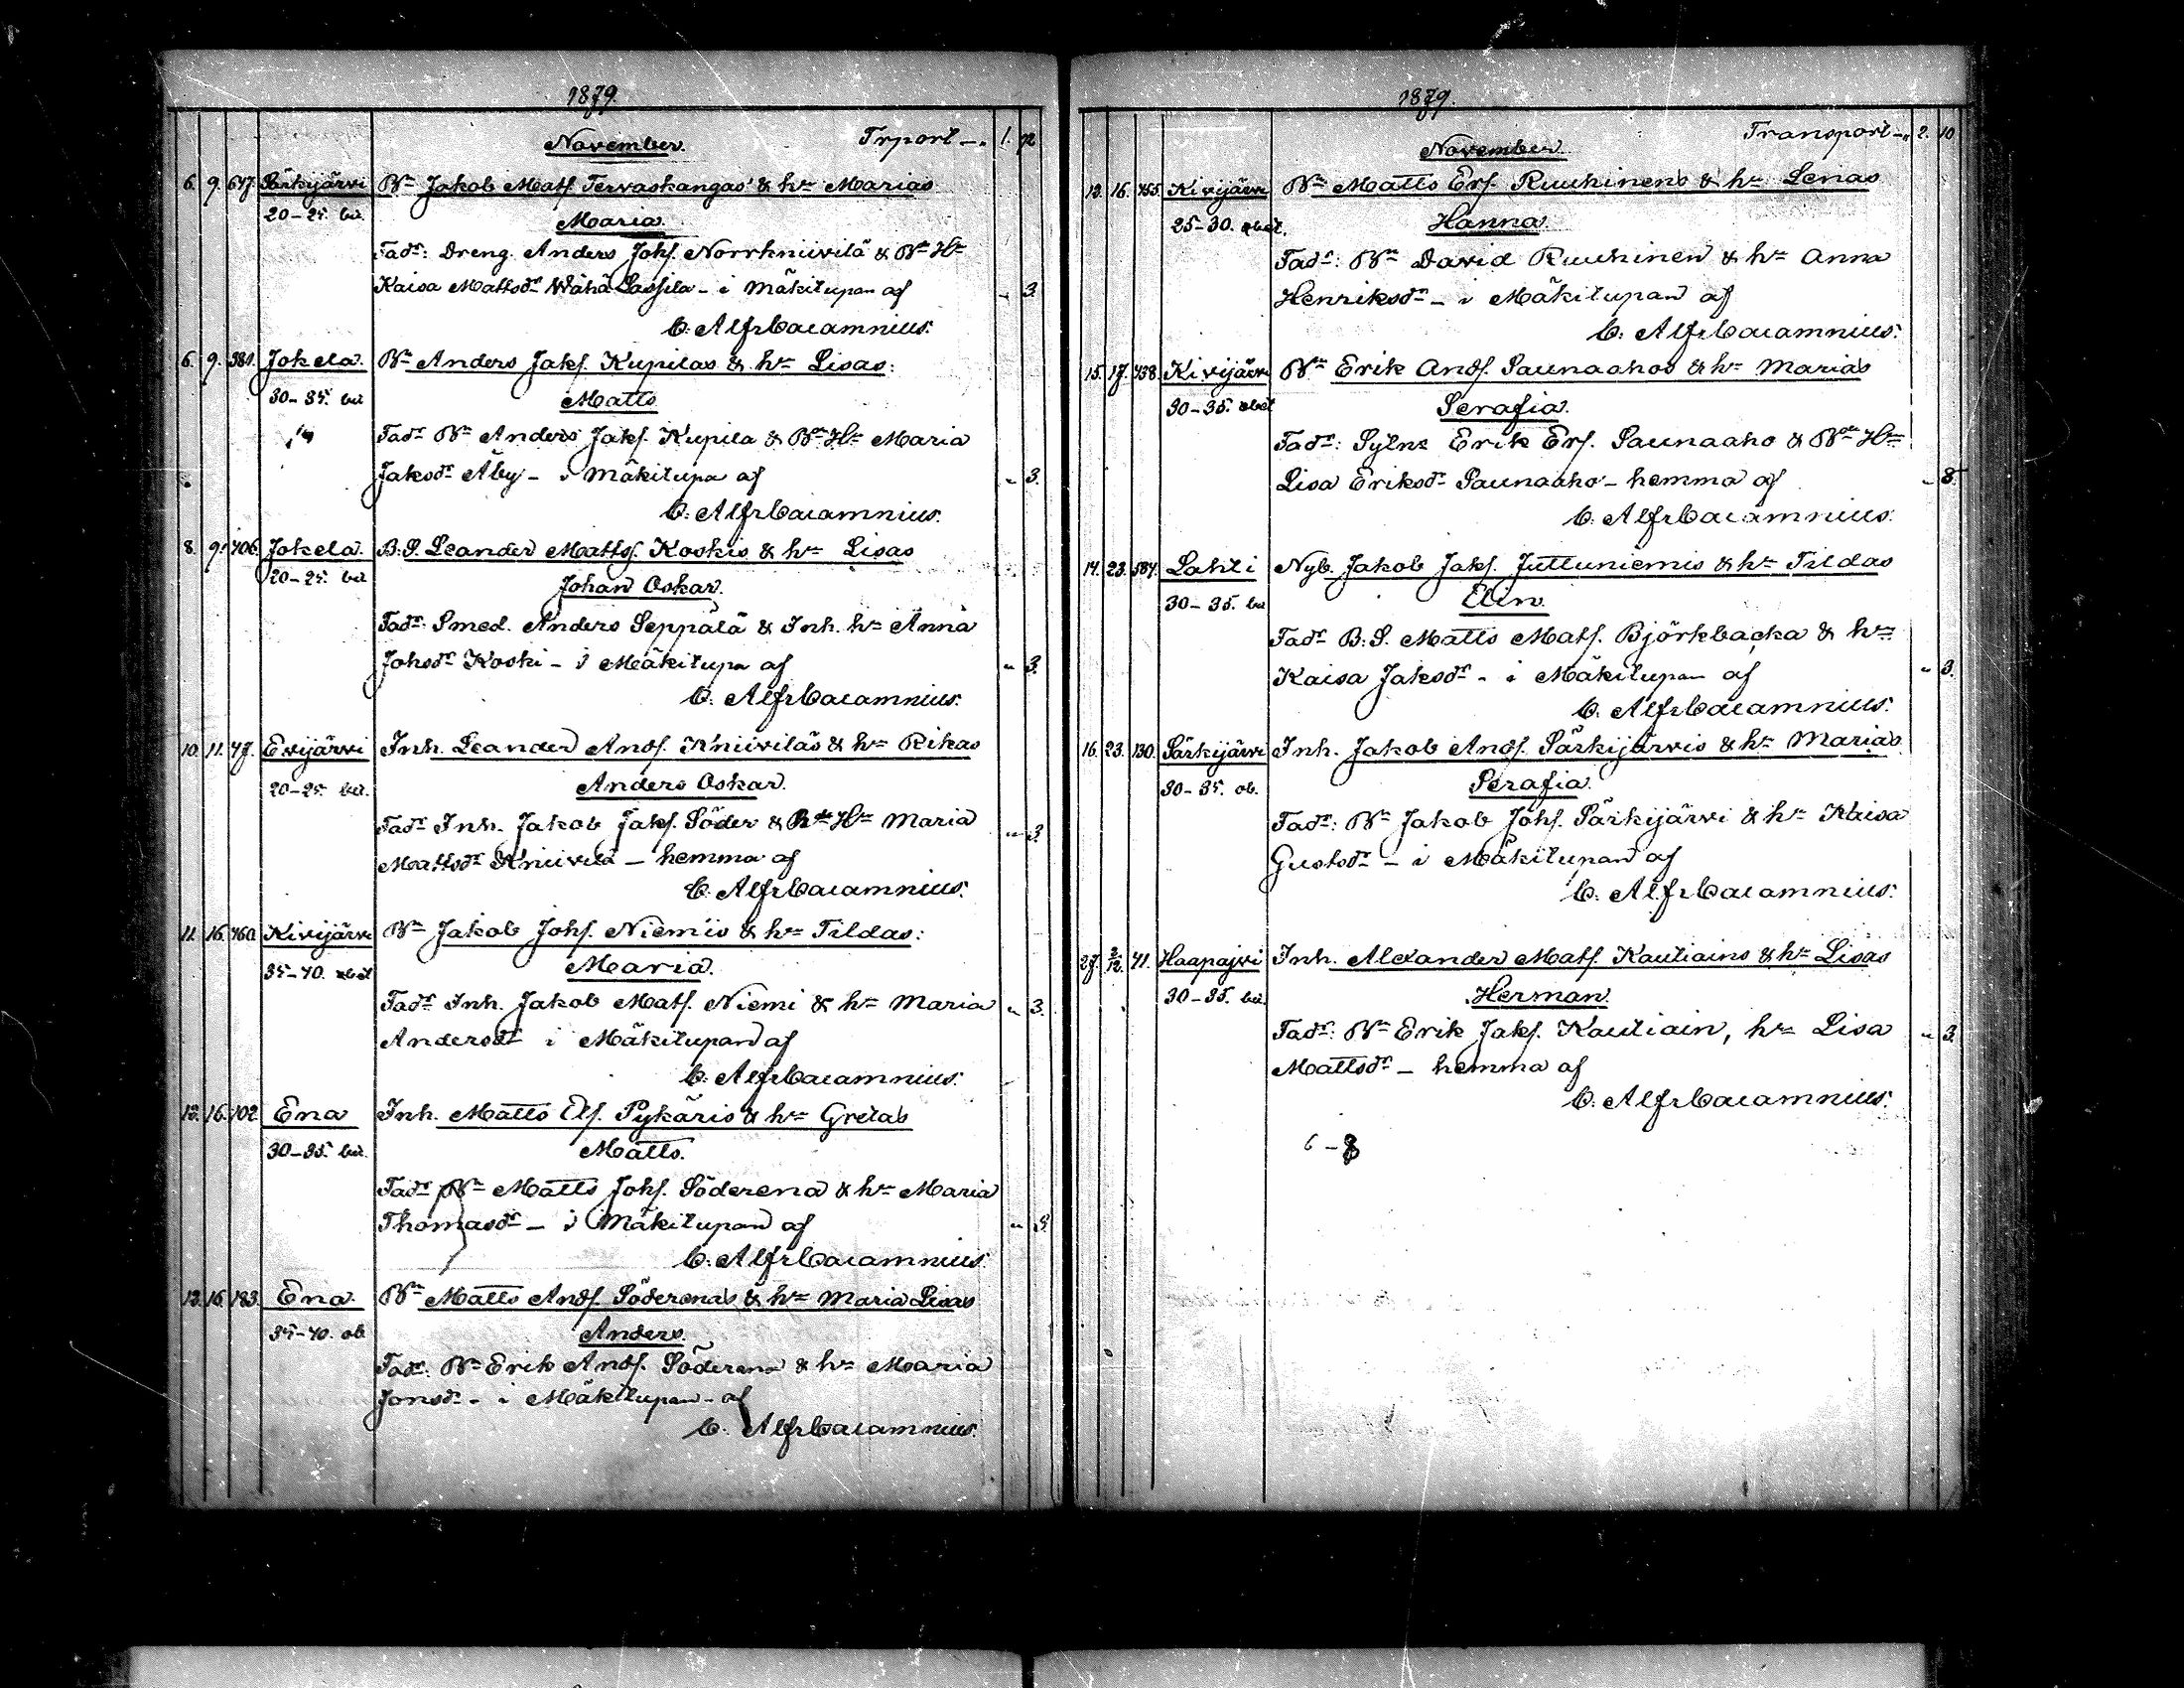 1879.
November. Trport -„ 1. 72
6. 9. 647. Särkijärvi Bn Jakob Matss. Tervaskangas' & hn Marias
20-25. bä. Maria.
Fadr: Dreng. Anders Johs. Norrkniivilä & Bn Hn
Kaisa Mattsdr Wähä Lassila - i Mäkitupan af „ 3.
C. Alfr Cajamnius.
6. 9. 381. Jokela. Bn Anders Jaks. Kupilas & hn Lisas:
30-35. bä Matts
Fadr Bn Anders Jaks. Kupila & Bde Hn Maria
Jaksdr Åby - i Mäkitupa af „ 3.
C. Alfr Cajamnius.
8. 9. 406. Jokela. B.S. Leander Mattss. Koskis & hn Lisas
20-25. bä Johan Oskar.
Fadr: Smed. Anders Seppälä & Inh. hn Anna
Johsdr Koski - i Mäkitupa af „ 3.
C. Alfr Cajamnius.
10. 11. 47. Evijärvi Inh. Leander Ands. Kniiviläs & hn Rikas
20-25. bä. Anders Oskar.
Fadr Inh. Jakob Jaks. Söder & Bde Hn Maria „ 3.
Mattsdr Kniivilä - hemma af
C. Alfr Cajamnius.
11. 16. 460. Kivijärvi Bn Jakob Johs. Niemis & hn Tildas:
35-40. obät Maria.
Fadr Inh. Jakob Mats. Niemi & hn Maria „ 3.
Andersdr i Mäkitupan af
C. Alfr Cajamnius.
12. 16. 102. Ena Inh. Matts Els. Pykäris & hn Gretas
30-35. bä. Matts.
Fadr Bn Matts Johs. Söderena & hn Maria
Thomasdr - i Mäkitupan af „ 3.
C. Alfr Cajamnius.
13. 16. 183. Ena. Bn Matts Ands. Söderenas & hn Maria Lisas
35-40. ob Anders.
Fadr. Bn Erik Ands. Söderena & hn Maria
Jonsdr - i Mäkitupan - af
C. Alfr Cajamnius.
1879.
November. Transport -„ 2. 10
13. 16. 455. Kivijärvi Bn Matts Ers. Ruuhinens & hn Lenas
25-30. obät. Hanna.
Fadr: Bn David Ruuhinen & hn Anna
Henriksdr - i Mäkitupan af
C. Alfr Cajamnius.
15. 17. 438. Kivijärvi Bn Erik Ands. Saunaahos & hn Marias
30-35. obät Serafia.
Fadr: Sytn: Erik Ers. Saunaaho & Bde Hn
Lisa Eriksdr Saunaaho - hemma af „ 8.
C. Alfr Cajamnius.
14. 23. 587. Lahti Nyb. Jakob Jaks. Juttuniemis & hn Tildas
30-35. bä Elin.
Fadr B.S. Matts Mats. Björkbacka & hn
Kaisa Jaksdr - i Mäkitupan af „ 3.
C. Alfr Cajamnius.
16. 23. 130. Särkijärvi Inh. Jakob Ands. Särkijärvis & hn Marias
30-35. ob. Serafia.
Fadr: Bn Jakob Johs. Särkijärvi & hn Kaisa
Gustsdr - i Mäkitupan af
C. Alfr Cajamnius.
27. 2/12. 41. Haapajvi Inh. Alexander Mats. Kautiains & hn Lisas
30-35. bä. Herman.
Fadr: Bn Erik Jaks. Kautiain, hn Lisa „ 3.
Mattsdr - hemma af
C. Alfr Cajamnius.
6 - 8